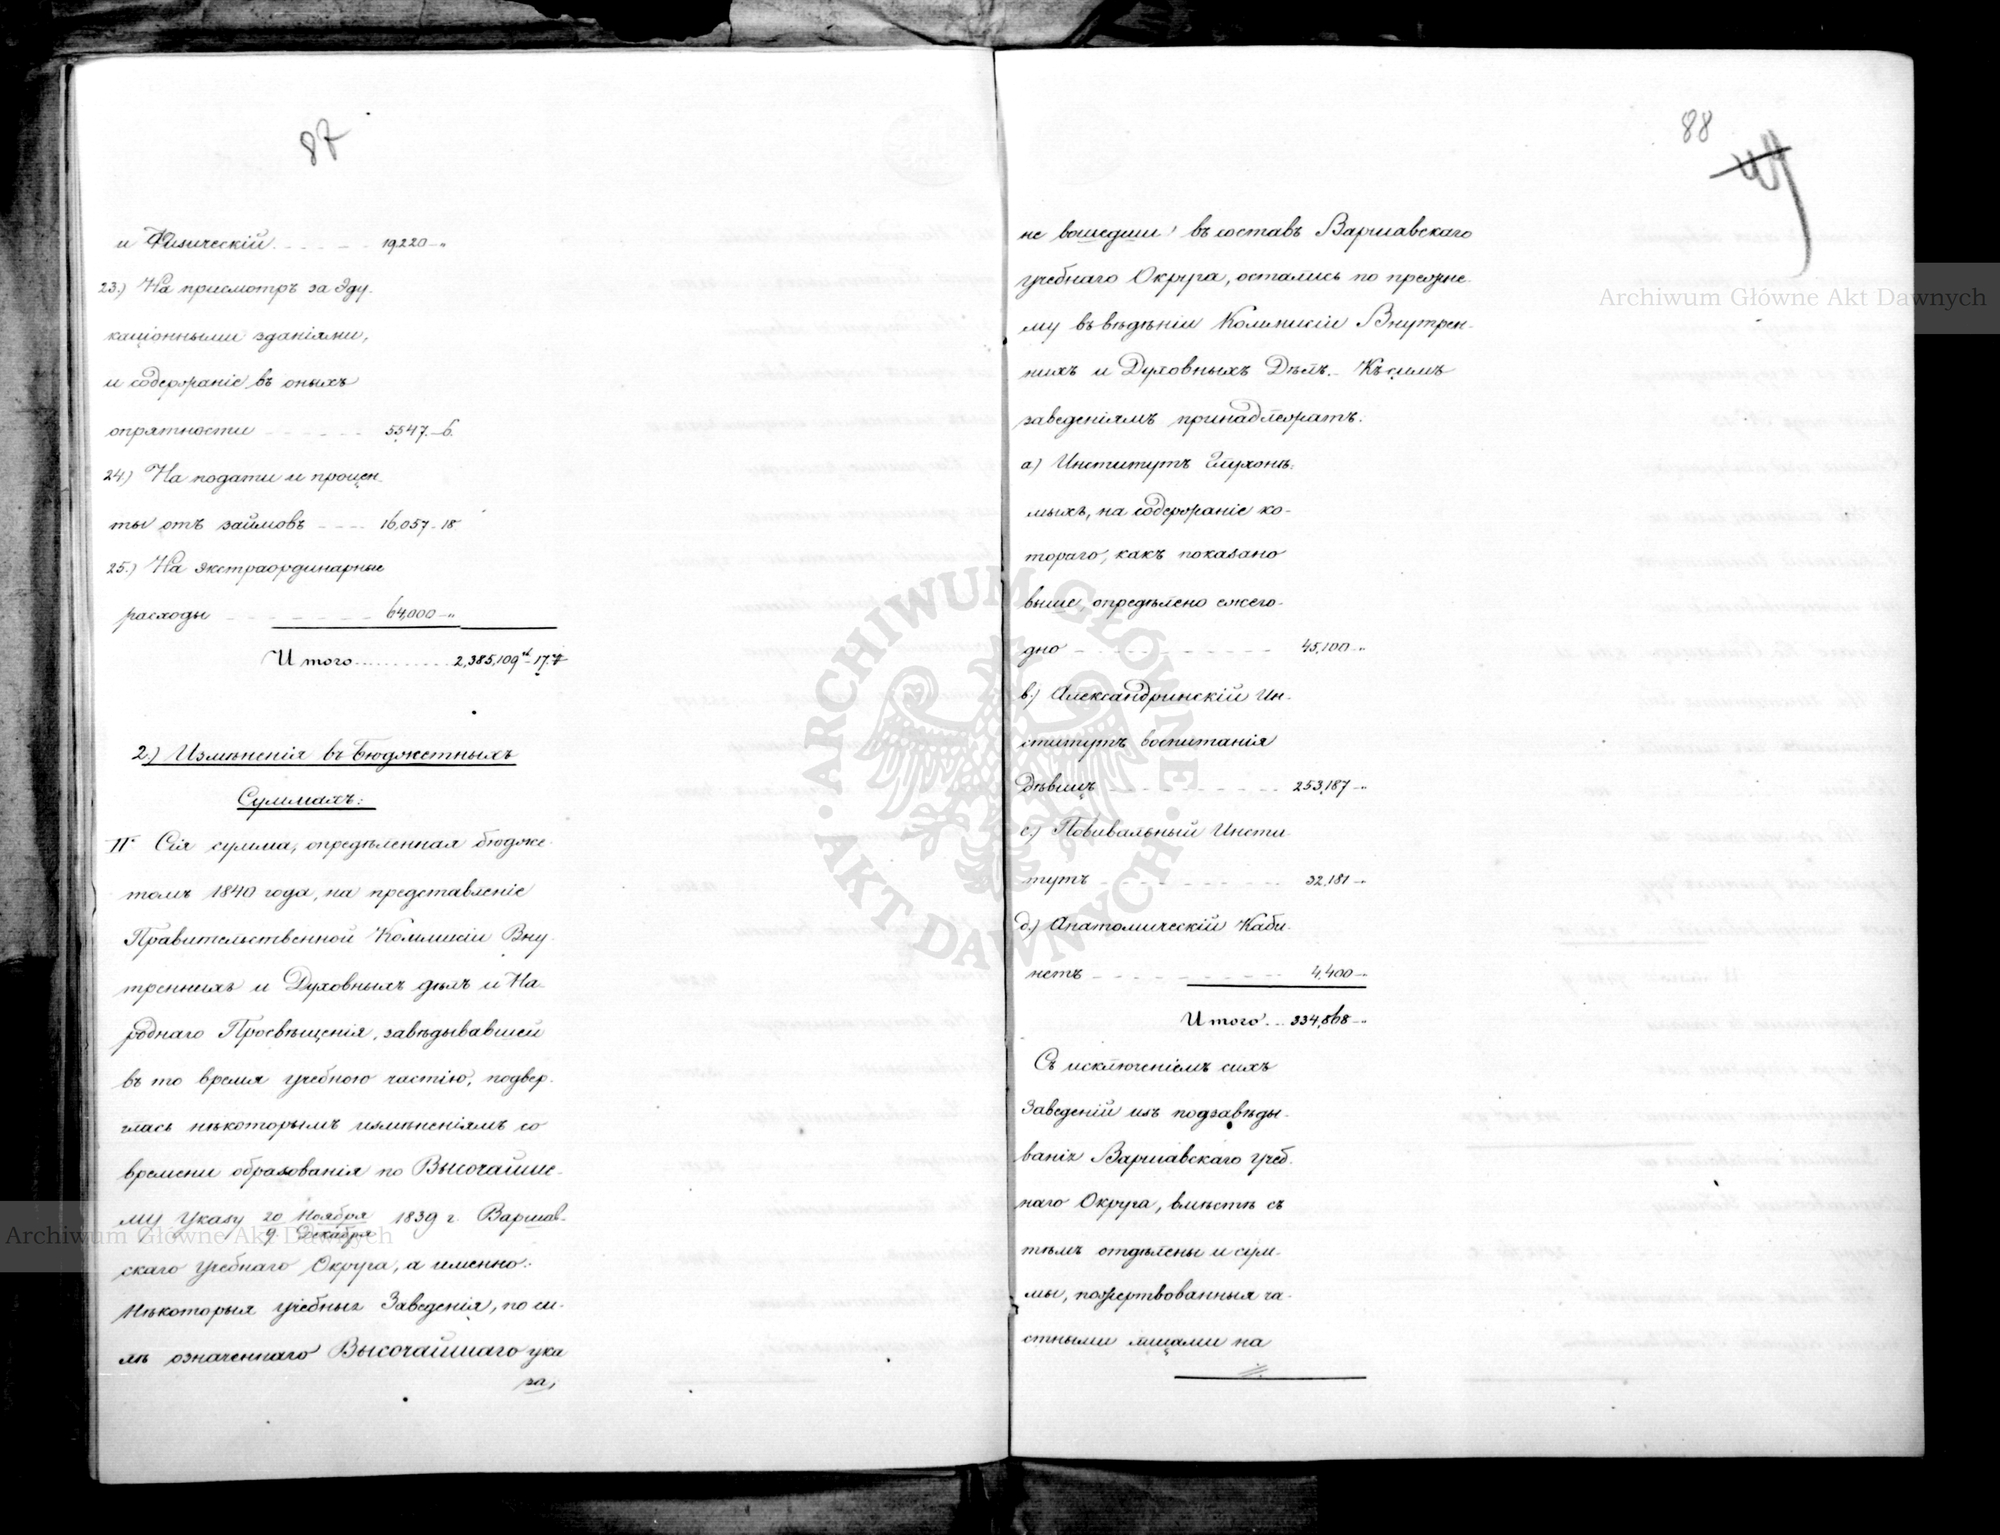 87
и Физическій. - - - - - 19220 -"
23.) На присмотръ за Эду-
каціонными зданіями,
и содержаніе въ оныхъ
опрятности - - - - - - 5547.-6.
24.) На подати и процен-
ты отъ займовъ - - - - 16,057-18
25.) На экстраординарные
расходы - - - - - - - - 64,000 -"
Итого.......... 2,385,109
2.) Измѣненія въ Бюджетныхъ
Суммахъ:
Сія сумма, опредѣленная бюдже-
томъ 1840 года, на представленіе
Правительственной Коммисіи Вну-
треннихъ и Духовныхъ дѣлъ и На-
роднаго Просвѣщенія, завѣдывавшей
въ то время учебною частію, подвер-
глась нѣкоторымъ измѣненіямъ со
времени образованія по Высочайше-
му Указу 20 Ноября 1839 г. Варшав-
9 Декабря
скаго Учебнаго Округа, а именно:
Нѣкоторыя учебныя Заведенія, по си-
лѣ означеннаго Высочайшаго ука
за,
88
не вошедши въ составъ Варшавскаго
учебнаго Округа, остались по прежне-
му въ вѣдѣніи Коммисіи Внутрен-
нихъ и Духовныхъ Дѣлъ.- Къ симъ
заведеніямъ принадлежатъ:
а) Институтъ Глухонѣ-
мыхъ, на содержаніе ко-
тораго, какъ показано
выше, опредѣлено ежего-
дно - - - - - - - - - - - 45,100 -"
в.) Александринскій Ин-
ститутъ воспитанія
Дѣвицъ - - - - - - - - - 253,187 -"
с.) Повивальный Инсти-
тутъ - - - - - - - - - - 32,181 -"
д.) Анатомическій Каби-
нетъ - - - - - - - - - - 4,400 -"
Итого... 334,868 -"
Съ исключеніемъ сихъ
Заведеній изъ подзавѣды-
ванія Варшавскаго Учеб-
наго Округа, вмѣстѣ съ
тѣмъ отдѣлены и сум-
мы, пожертвованныя ча-
стными лицами на
Archiwum Główne Akt Dawnych
Archiwum Główne Akt Dawnych
ARCHIWUM GŁÓWNE · AKT DAWNYCH ·